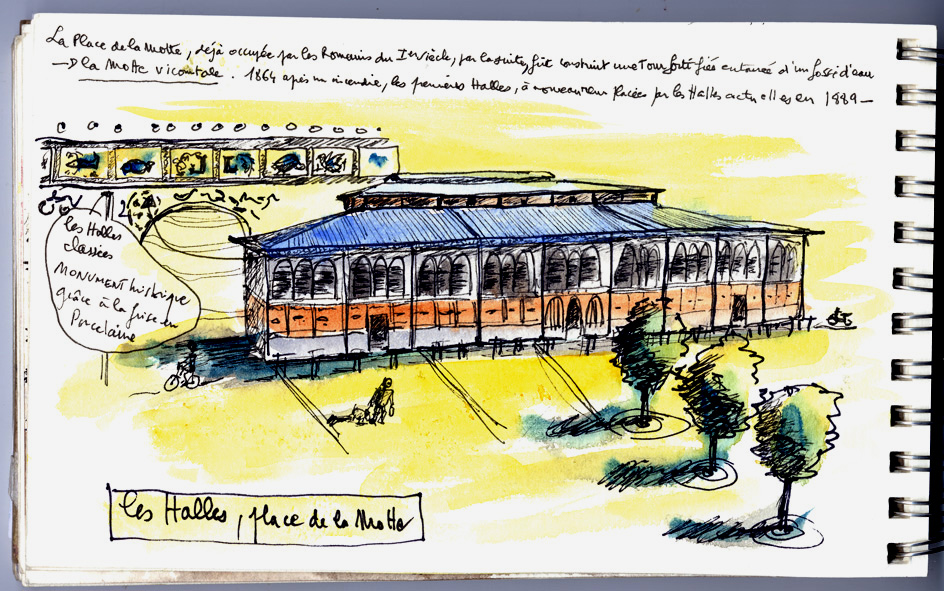 La Place de la Motte, déjà occupée par les Romains du Ier siècle, par la suite, fut construit une Tour fortifiée entourée d'un fossé d'eau
la Motte vicomtale. 1864 après un incendie, les premières Halles, à nouveau remplacées par les Halles actuelles en 1889
les Halles
classées
MONUMENT historique
grâce à la frise en
Porcelaine
les Halles, place de la Motte